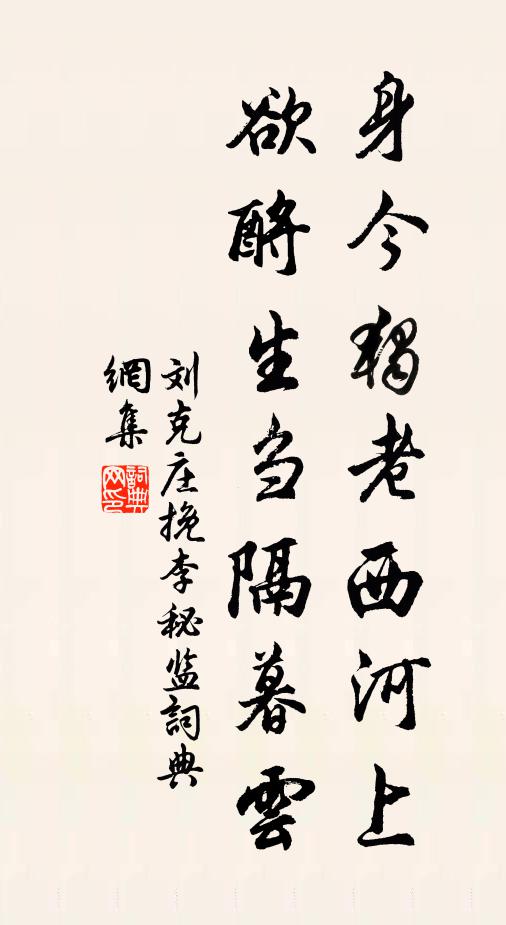 身今獨老西河上
欲酹生刍隔暮雲
刘克庄挽李秘监詞典
網集
詞典网印